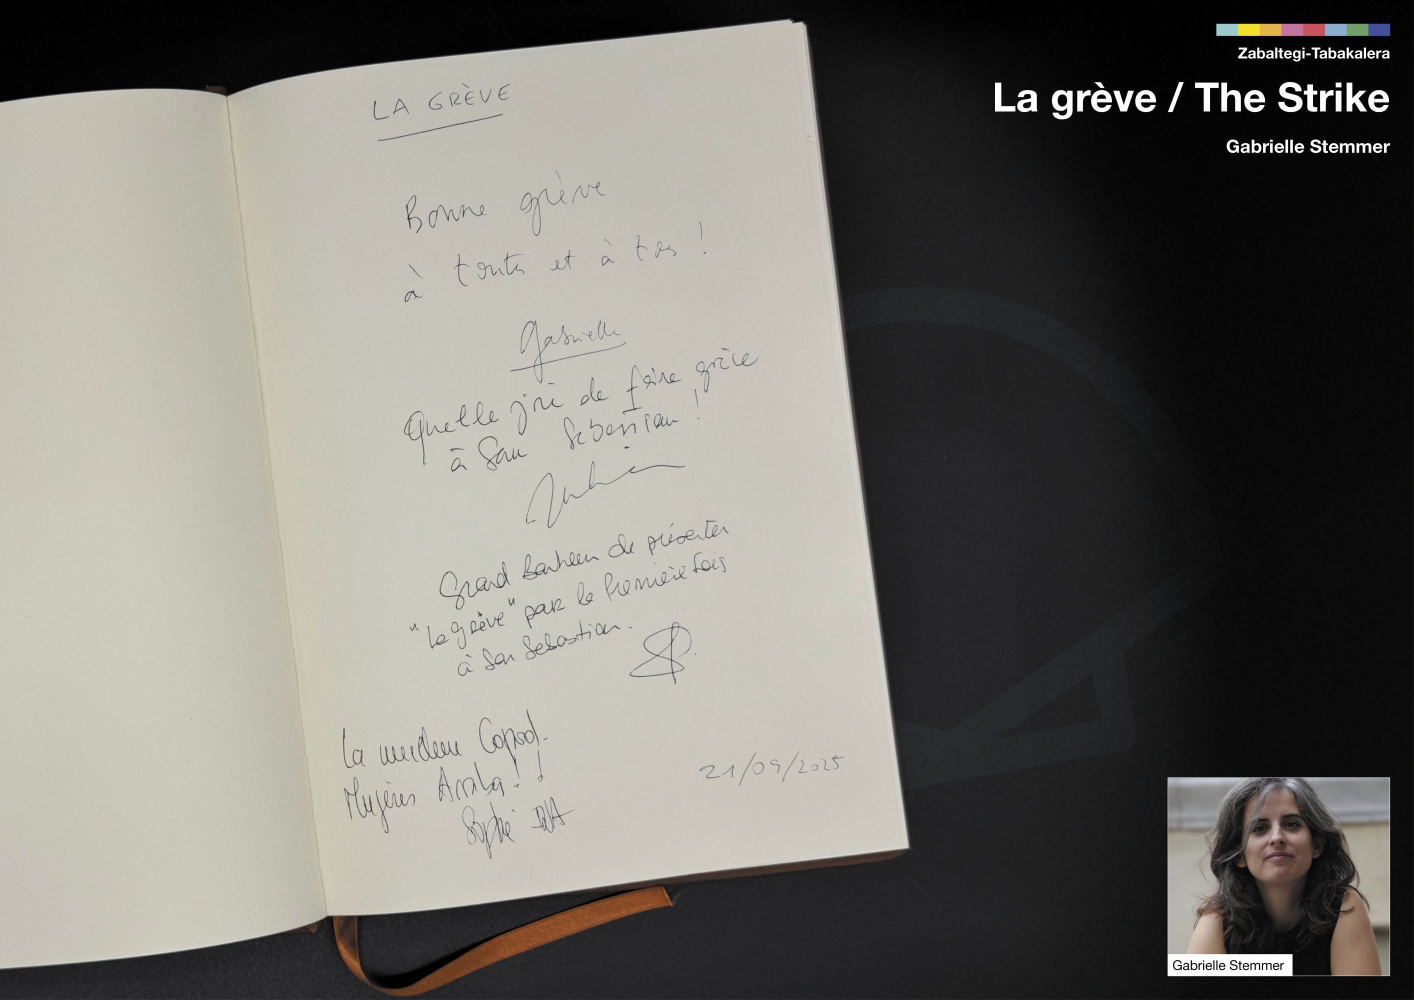 Zabaltegi-Tabakalera
La grève / The Strike
Gabrielle Stemmer
LA GRÈVE
Bonne grève
à toutes et à tous !
Gabrielle
Quelle joie de faire grève
à San Sebastian !
Grand bonheur de présenter
"La grève" pour la première fois
à San Sebastian.
La
Mujeres Arriba ! !
Sophie
21/09/2025
Gabrielle Stemmer